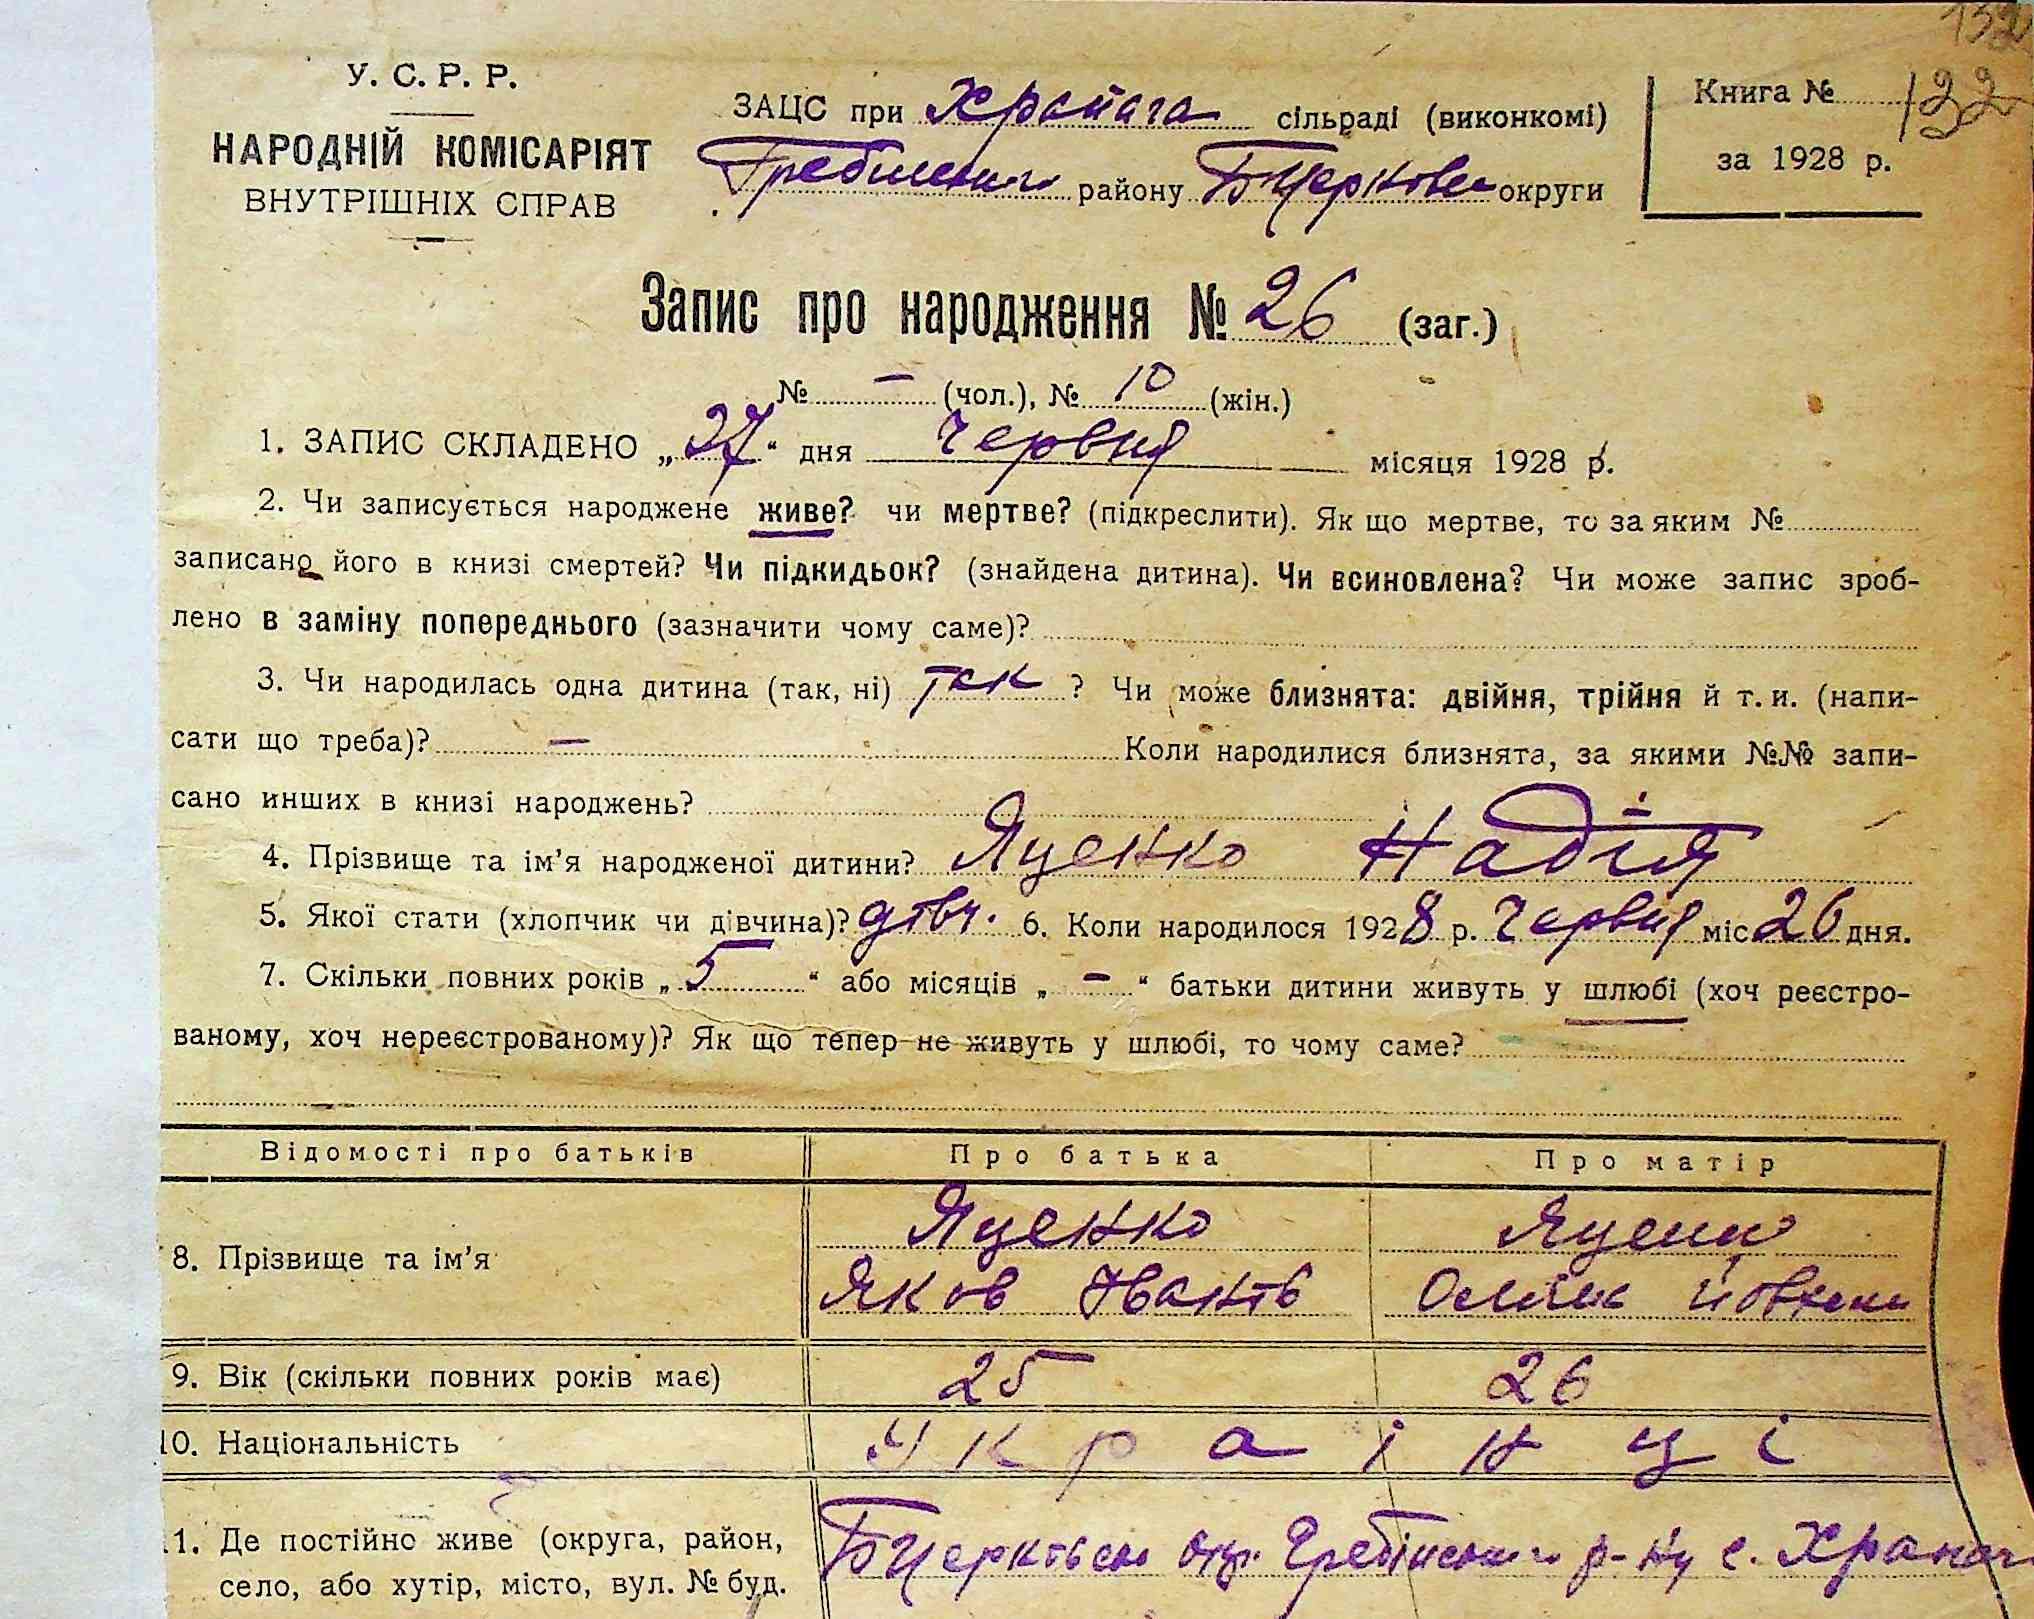 132
У. С. Р. Р.
НАРОДНІЙ КОМІСАРІЯТ
ВНУТРІШНІХ СПРАВ
ЗАЦС при сільраді (виконкомі)
району Б Церковс округи
Книга № 122
за 1928 р.
Запис про народження № 26 (заг.)
№ – (чол.), № 10 (жін.)
1. ЗАПИС СКЛАДЕНО „27“ дня Червня місяця 1928 р.
2. Чи записується народжене живе? чи мертве? (підкреслити). Як що мертве, то за яким №
записано його в книзі смертей? Чи підкидьок? (знайдена дитина). Чи всиновлена? Чи може запис зроб-
лено в заміну попереднього (зазначити чому саме)?
3. Чи народилась одна дитина (так, ні) так ? Чи може близнята: двійня, трійня й т. и. (напи-
сати що треба)? – Коли народилися близнята, за якими №№ запи-
сано инших в книзі народжень?
4. Прізвище та ім'я народженої дитини? Яценко Надія
5. Якої стати (хлопчик чи дівчина)? дівч. 6. Коли народилося 1928 р. Червня міс 26 дня.
7. Скільки повних років „5“ або місяців „–“ батьки дитини живуть у шлюбі (хоч реєстро-
ваному, хоч нереєстрованому)? Як що тепер не живуть у шлюбі, то чому саме?
Відомості про батьків Про батька Про матір
8. Прізвище та ім'я Яценко Яценко
Яков Іванів
9. Вік (скільки повних років має) 25 26
10. Національність Українці
11. Де постійно живе (округа, район, Б Церківсь окр. р-ну с.
село, або хутір, місто, вул. № буд.